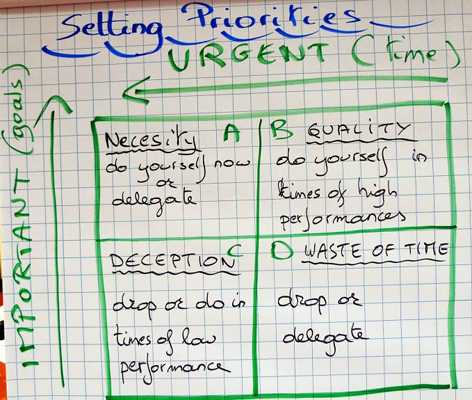 Setting Priorities
URGENT (time)
IMPORTANT (goals)
Necesity A
do yourself now
or
delegate
B QUALITY
do yourself in
times of high
performances
DECEPTION C
drop or do in
times of low
performance
D WASTE OF TIME
drop or
delegate